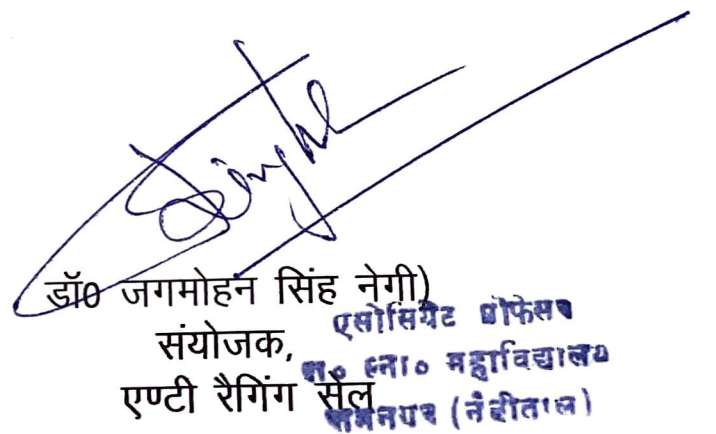 डॉ0 जगमोहन सिंह नेगी)
संयोजक,
एण्टी रैगिंग सेल
एसोसिएट प्रोफेसर
स्ना० महाविद्यालय
रामनगर (नैनीताल)